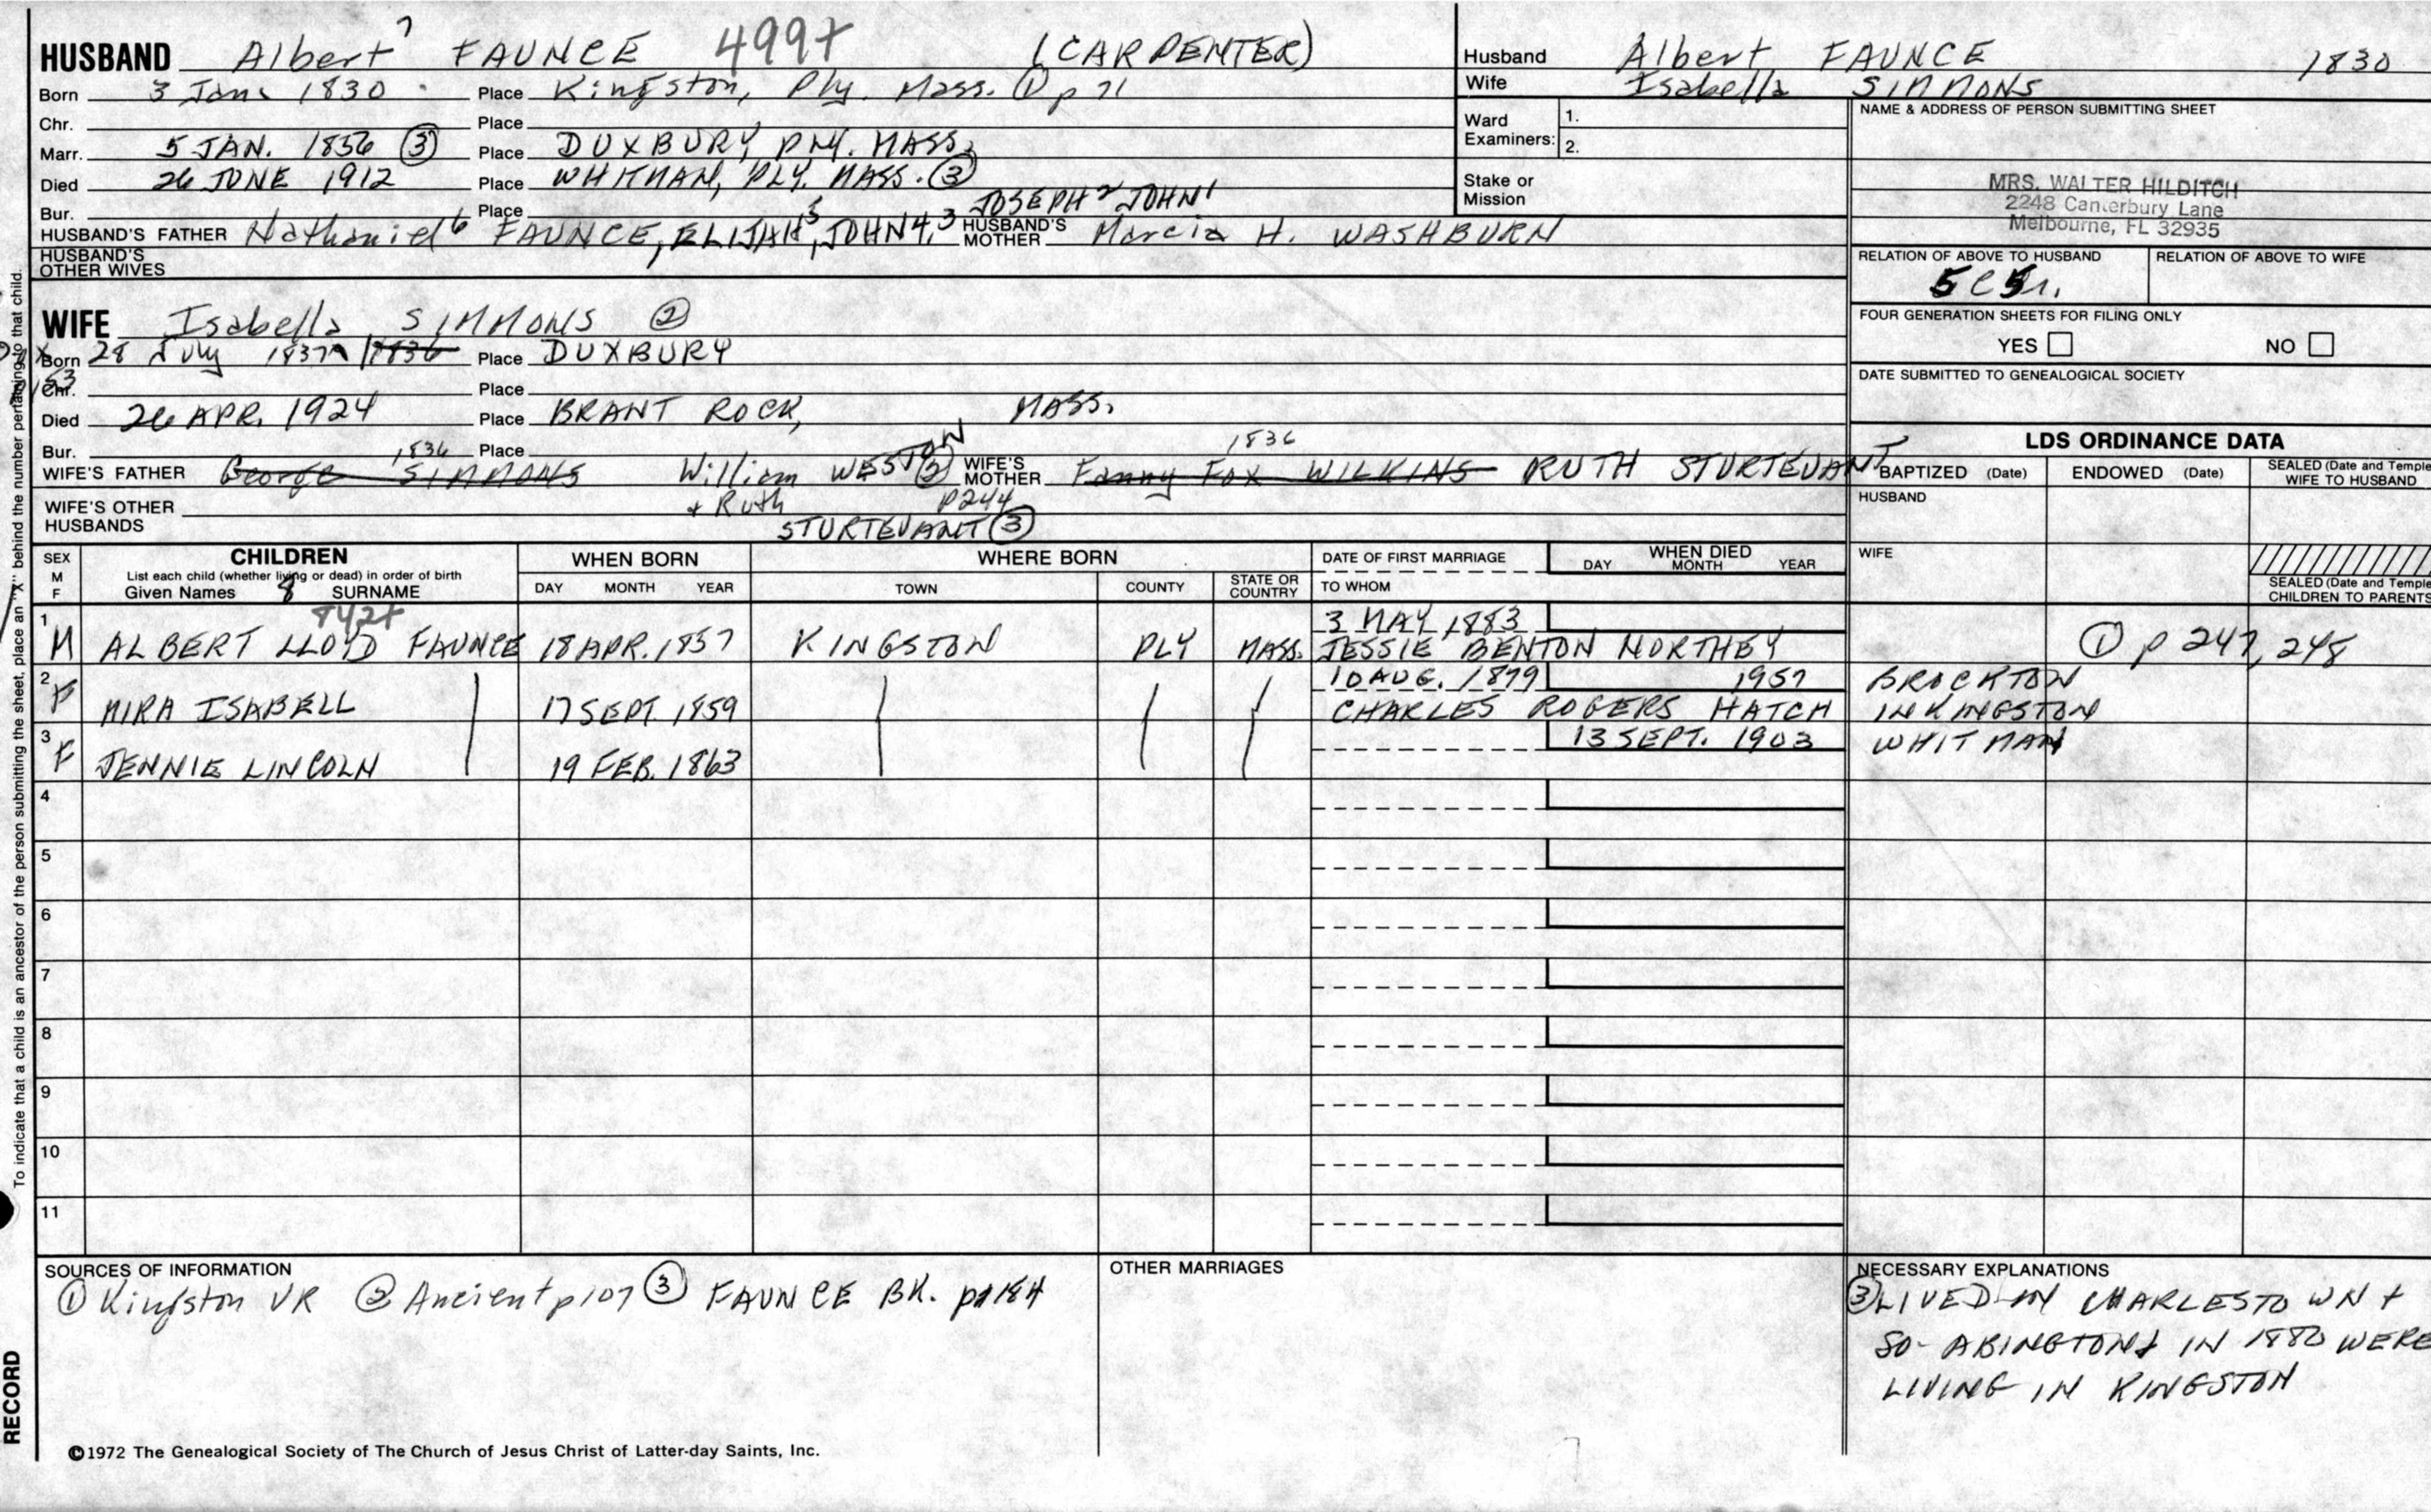 HUSBAND Albert 7 FAUNCE 499+ (CARPENTER)
Born 3 Jan. 1830 Place Kingston, Ply. Mass. ① p 71
Chr. Place
Marr. 5 JAN. 1856 ③ Place DUXBURY, PLY. MASS.
Died 26 JUNE 1912 Place WHITMAN, PLY. MASS. ③
Bur. Place JOSEPH 2 JOHN 1
HUSBAND'S FATHER Nathaniel 6 FAUNCE, ELIJAH 5, JOHN 4,3 HUSBAND'S MOTHER Marcia H. WASHBURN
HUSBAND'S OTHER WIVES
Husband Albert FAUNCE 1830
Wife Isabella SIMMONS
Ward Examiners: 1.
2.
Stake or Mission
NAME & ADDRESS OF PERSON SUBMITTING SHEET
MRS. WALTER HILDITCH
2248 Canterbury Lane
Melbourne, FL 32935
RELATION OF ABOVE TO HUSBAND RELATION OF ABOVE TO WIFE
5C5r.
FOUR GENERATION SHEETS FOR FILING ONLY
YES NO
DATE SUBMITTED TO GENEALOGICAL SOCIETY
WIFE Isabella SIMMONS ②
Born 28 July 1837 1836 Place DUXBURY
Chr. Place
Died 26 APR. 1924 Place BRANT ROCK, MASS.
Bur. 1836 Place 1836
WIFE'S FATHER George SIMMONS William WESTON ② WIFE'S MOTHER Fanny Fox WILKINS RUTH STURTEVANT
+ Ruth p244
WIFE'S OTHER HUSBANDS STURTEVANT ③
LDS ORDINANCE DATA
BAPTIZED (Date) ENDOWED (Date) SEALED (Date and Temple) WIFE TO HUSBAND
HUSBAND
WIFE
SEALED (Date and Temple) CHILDREN TO PARENTS
SEX M F CHILDREN WHEN BORN WHERE BORN DATE OF FIRST MARRIAGE WHEN DIED
List each child (whether living or dead) in order of birth
Given Names 8 SURNAME DAY MONTH YEAR TOWN COUNTY STATE OR COUNTRY TO WHOM DAY MONTH YEAR
842+
1 3 MAY 1883
M ALBERT LLOYD FAUNCE 18 APR. 1857 KINGSTON PLY MASS. JESSIE BENTON NORTHEY ① p 247, 248
2 10 AUG. 1879 1957 BROCKTON
F MIRA ISABELL 17 SEPT 1859 CHARLES ROGERS HATCH IN KINGSTON
3 13 SEPT. 1903 WHITMAN
F JENNIE LINCOLN 19 FEB. 1863
4
5
6
7
8
9
10
11
SOURCES OF INFORMATION
① Kingston VR ② Ancient p107 ③ FAUNCE BK. p184
OTHER MARRIAGES
NECESSARY EXPLANATIONS
③ LIVED IN CHARLESTOWN +
SO- ABINGTON & IN 1880 WERE
LIVING IN KINGSTON
©1972 The Genealogical Society of The Church of Jesus Christ of Latter-day Saints, Inc.
To indicate that a child is an ancestor of the person submitting the sheet, place an "X" behind the number pertaining to that child.
RECORD